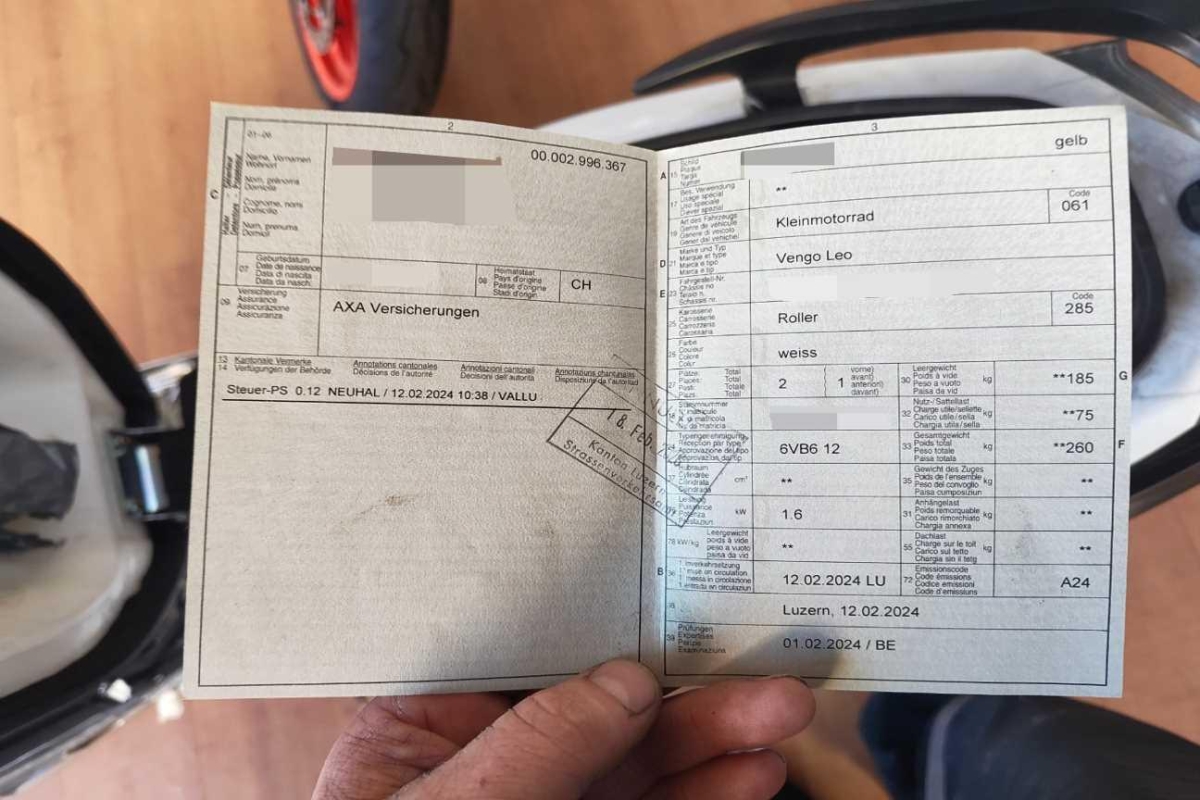 2
01-06
Name, Vornamen
Wohnort
00.002.996.367
Nom, prénoms
Domicile
C
Cognome, nomi
Domicilio
Num, prenums
Domicil
07
Geburtsdatum
Date de naissance
Data di nascita
Data da nasch.
08
Heimatstaat
Pays d'origine
Paese d'origine
Stadi d'origin
CH
09
Versicherung
Assurance
Assicurazione
Assicuranza
AXA Versicherungen
13
14
Kantonale Vermerke
Verfügungen der Behörde
Annotations cantonales
Décisions de l'autorité
Annotazioni cantonali
Decisioni dell'autorità
Annotaziuns chantunalas
Disposiziuns da l'autoritad
Steuer-PS 0.12 NEUHAL / 12.02.2024 10:38 / VALLU
18. Feb.
Kanton Luzern
Strassenverkehrsamt
3
A 15
Schild
gelb
17
Bes. Verwendung
Usage spécial
Uso speciale
Diever spezial
**
19
Art des Fahrzeugs
Genre de véhicule
Genere di veicolo
Gener dal vehichel
Kleinmotorrad
Code
061
D 21
Marke und Typ
Marque et type
Marca e tipo
Marca e tip
Vengo Leo
E 23
Fahrgestell-Nr.
Châssis no
Telaio n.
Schassis nr.
25
Karosserie
Carrosserie
Carrozzeria
Carossaria
Roller
Code
285
26
Farbe
Couleur
Colore
Colur
weiss
27
Plätze: Total
Places: Total
Posti: Totale
Plazs: Total
2
1
vorne)
avant)
anteriori)
davant)
30
Leergewicht
Poids à vide
Peso a vuoto
Paisa da vid
kg
**185
G
32
Nutz-/Sattellast
Charge utile/sellette
Carico utile/sella
Chargia utila/sella
kg
**75
6VB6 12
33
Gesamtgewicht
Poids total
Peso totale
Paisa totala
kg
**260
F
37
Hubraum
Cylindrée
Cilindrata
cm³
**
35
Gewicht des Zuges
Poids de l'ensemble
Peso del convoglio
Paisa cumposiziun
kg
**
Leistung
Puissance
Potenza
Prestaziun
kW
1.6
31
Anhängelast
Poids remorquable
Carico rimorchiato
Chargia annexa
kg
**
78 kW/kg
Leergewicht
poids à vide
peso a vuoto
paisa da vid
**
55
Dachlast
Charge sur le toit
Carico sul tetto
Chargia sin il tetg
kg
**
B 36
12.02.2024 LU
72
Emissionscode
Code émissions
Codice emissioni
Code d'emissiuns
A24
38
Luzern, 12.02.2024
39
Prüfungen
Expertises
Perizie
Examinaziuns
01.02.2024 / BE